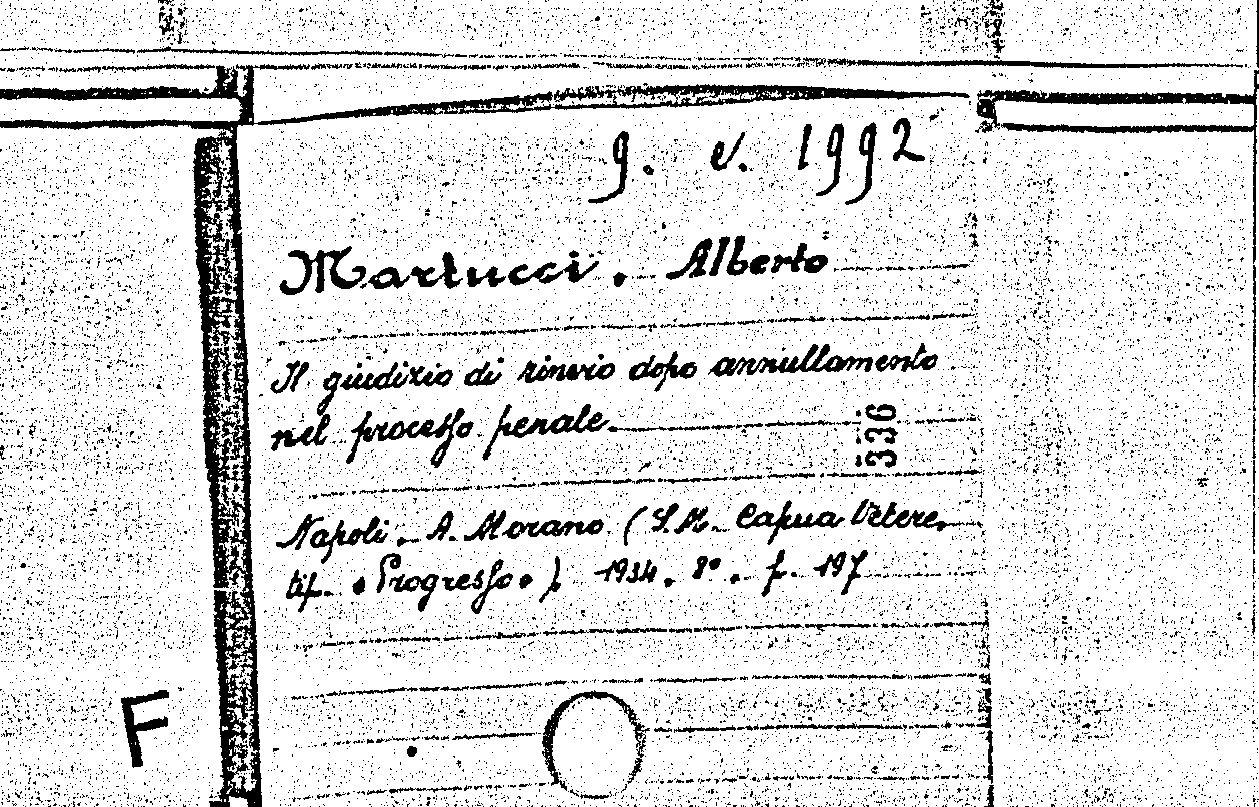 g. v. 1992
Martucci. Alberto
Il giudizio di rinvio dopo annullamento
nel processo penale
336
Napoli. A. Morano (S. M. Capua Vetere,
tip. "Progresso"). 1934. 8°. p. 197
F